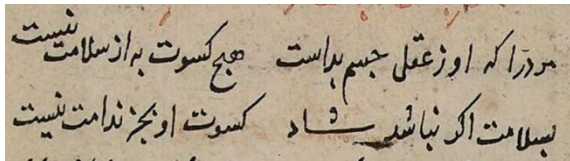 مردرا که او ز عقل جسم بداست هیچ کسوت به از سلامت نیست
بسلامت اکر نباشد شاد کسوت او بجز ندامت نیست